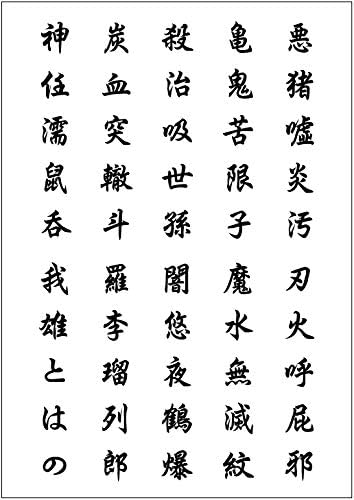 悪猪嘘炎汚刃火呼屁邪
亀鬼苦限子魔水無滅紋
殺治吸世孫闇悠夜鶴爆
炭血突轍斗羅李瑠列郎
神任濡鼠呑我雄とはの